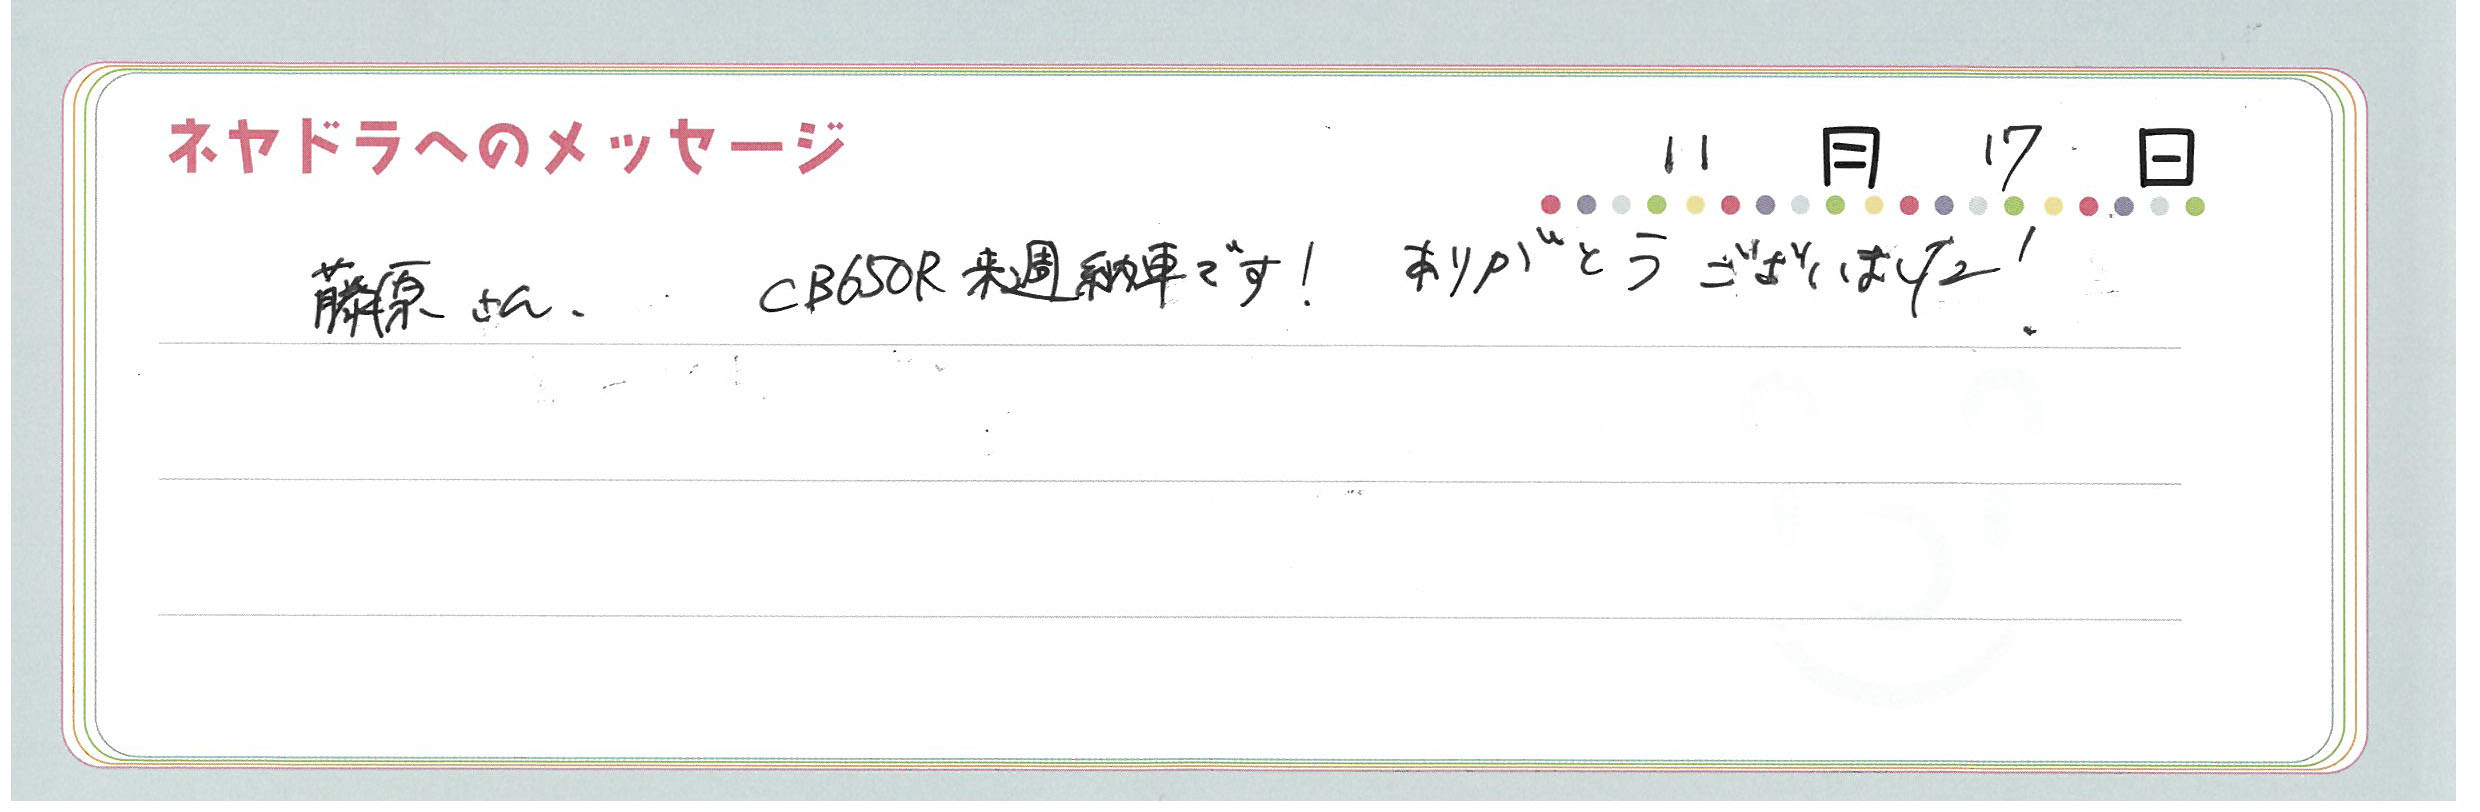 ネヤドラへのメッセージ
11月17日
藤原さん、 CB650R来週納車です! ありがとうございました!